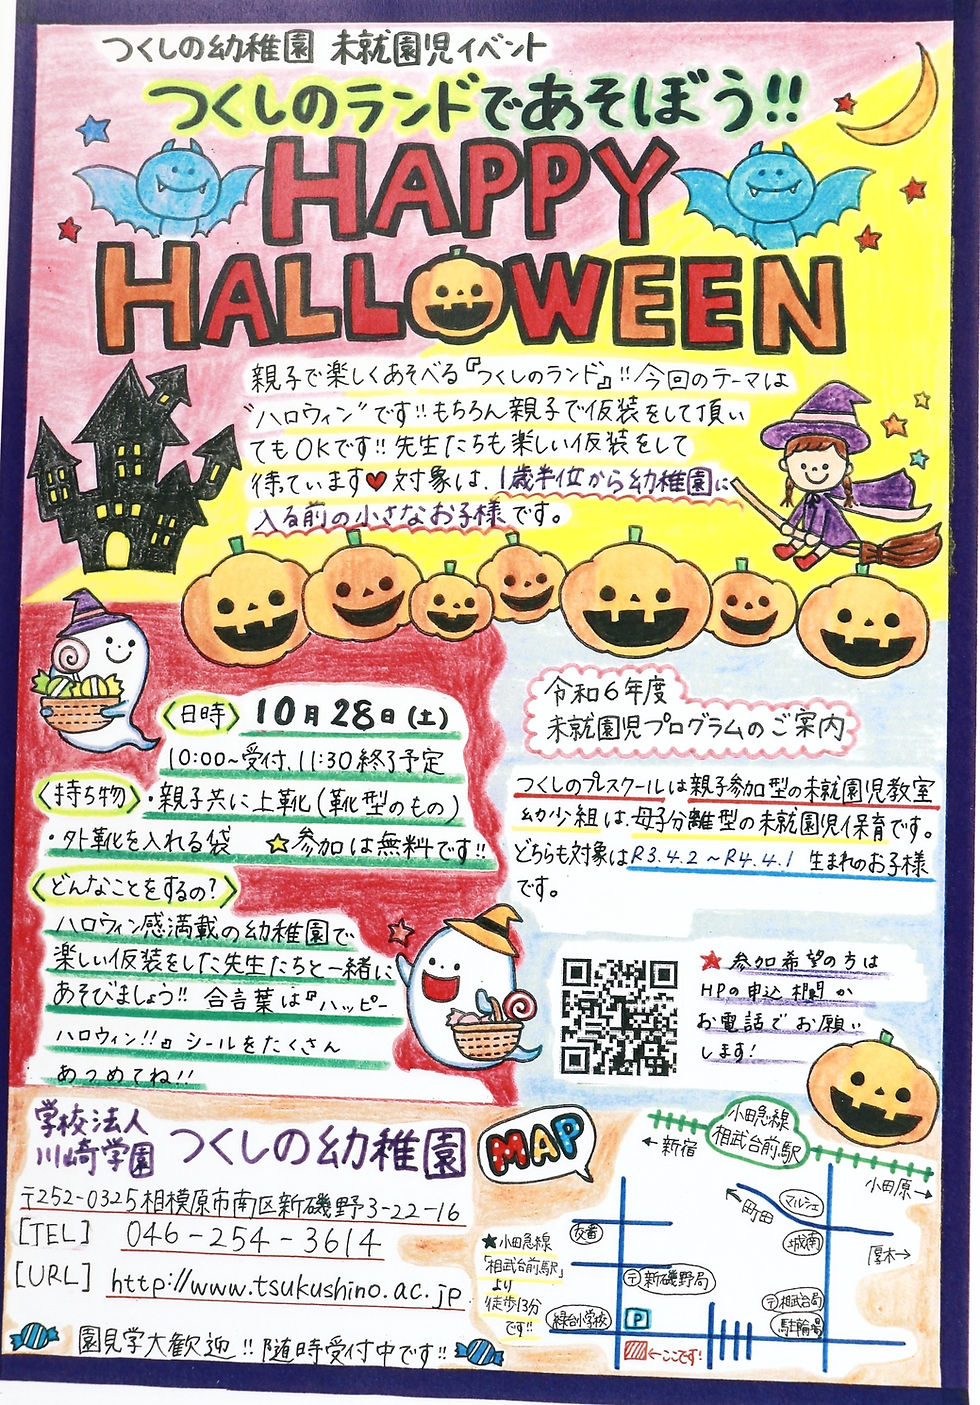 つくしの幼稚園 未就園児イベント
つくしのランドであそぼう!!
HAPPY
HALLOWEEN
親子で楽しくあそべる『つくしのランド』!!今回のテーマは
"ハロウィン"です!!もちろん親子で仮装をして頂い
てもOKです!!先生たちも楽しい仮装をして
待っています♥対象は、1歳半位から幼稚園に
入る前の小さなお子様です。
日時 10月28日(土)
10:00~受付、11:30終了予定
持ち物 ・親子共に上靴(靴型のもの)
・外靴を入れる袋 ☆参加は無料です!!
どんなことをするの?
ハロウィン感満載の幼稚園で
楽しい仮装をした先生たちと一緒に
あそびましょう!! 合言葉は『ハッピー
ハロウィン!!』シールをたくさん
あつめてね!!
令和6年度
未就園児プログラムのご案内
つくしのプレスクールは親子参加型の未就園児教室
幼少組は、母子分離型の未就園児保育です。
どちらも対象はR3.4.2~R4.4.1 生まれのお子様
です。
★参加希望の方は
HPの申込欄か
お電話でお願い
します!
学校法人
川崎学園 つくしの幼稚園
〒252-0325相模原市南区新磯野3-22-16
[TEL] 046-254-3614
[URL] http://www.tsukushino.ac.jp
園見学大歓迎!!随時受付中です!!
MAP
★小田急線
「相武台前駅」
より
徒歩13分
です!!
小田急線
相武台前駅
←新宿
小田原→
町田
マルシェ
城南
厚木→
交番
〒新磯野局
〒相武台局
駐輪場
緑台小学校
P
←ここです!